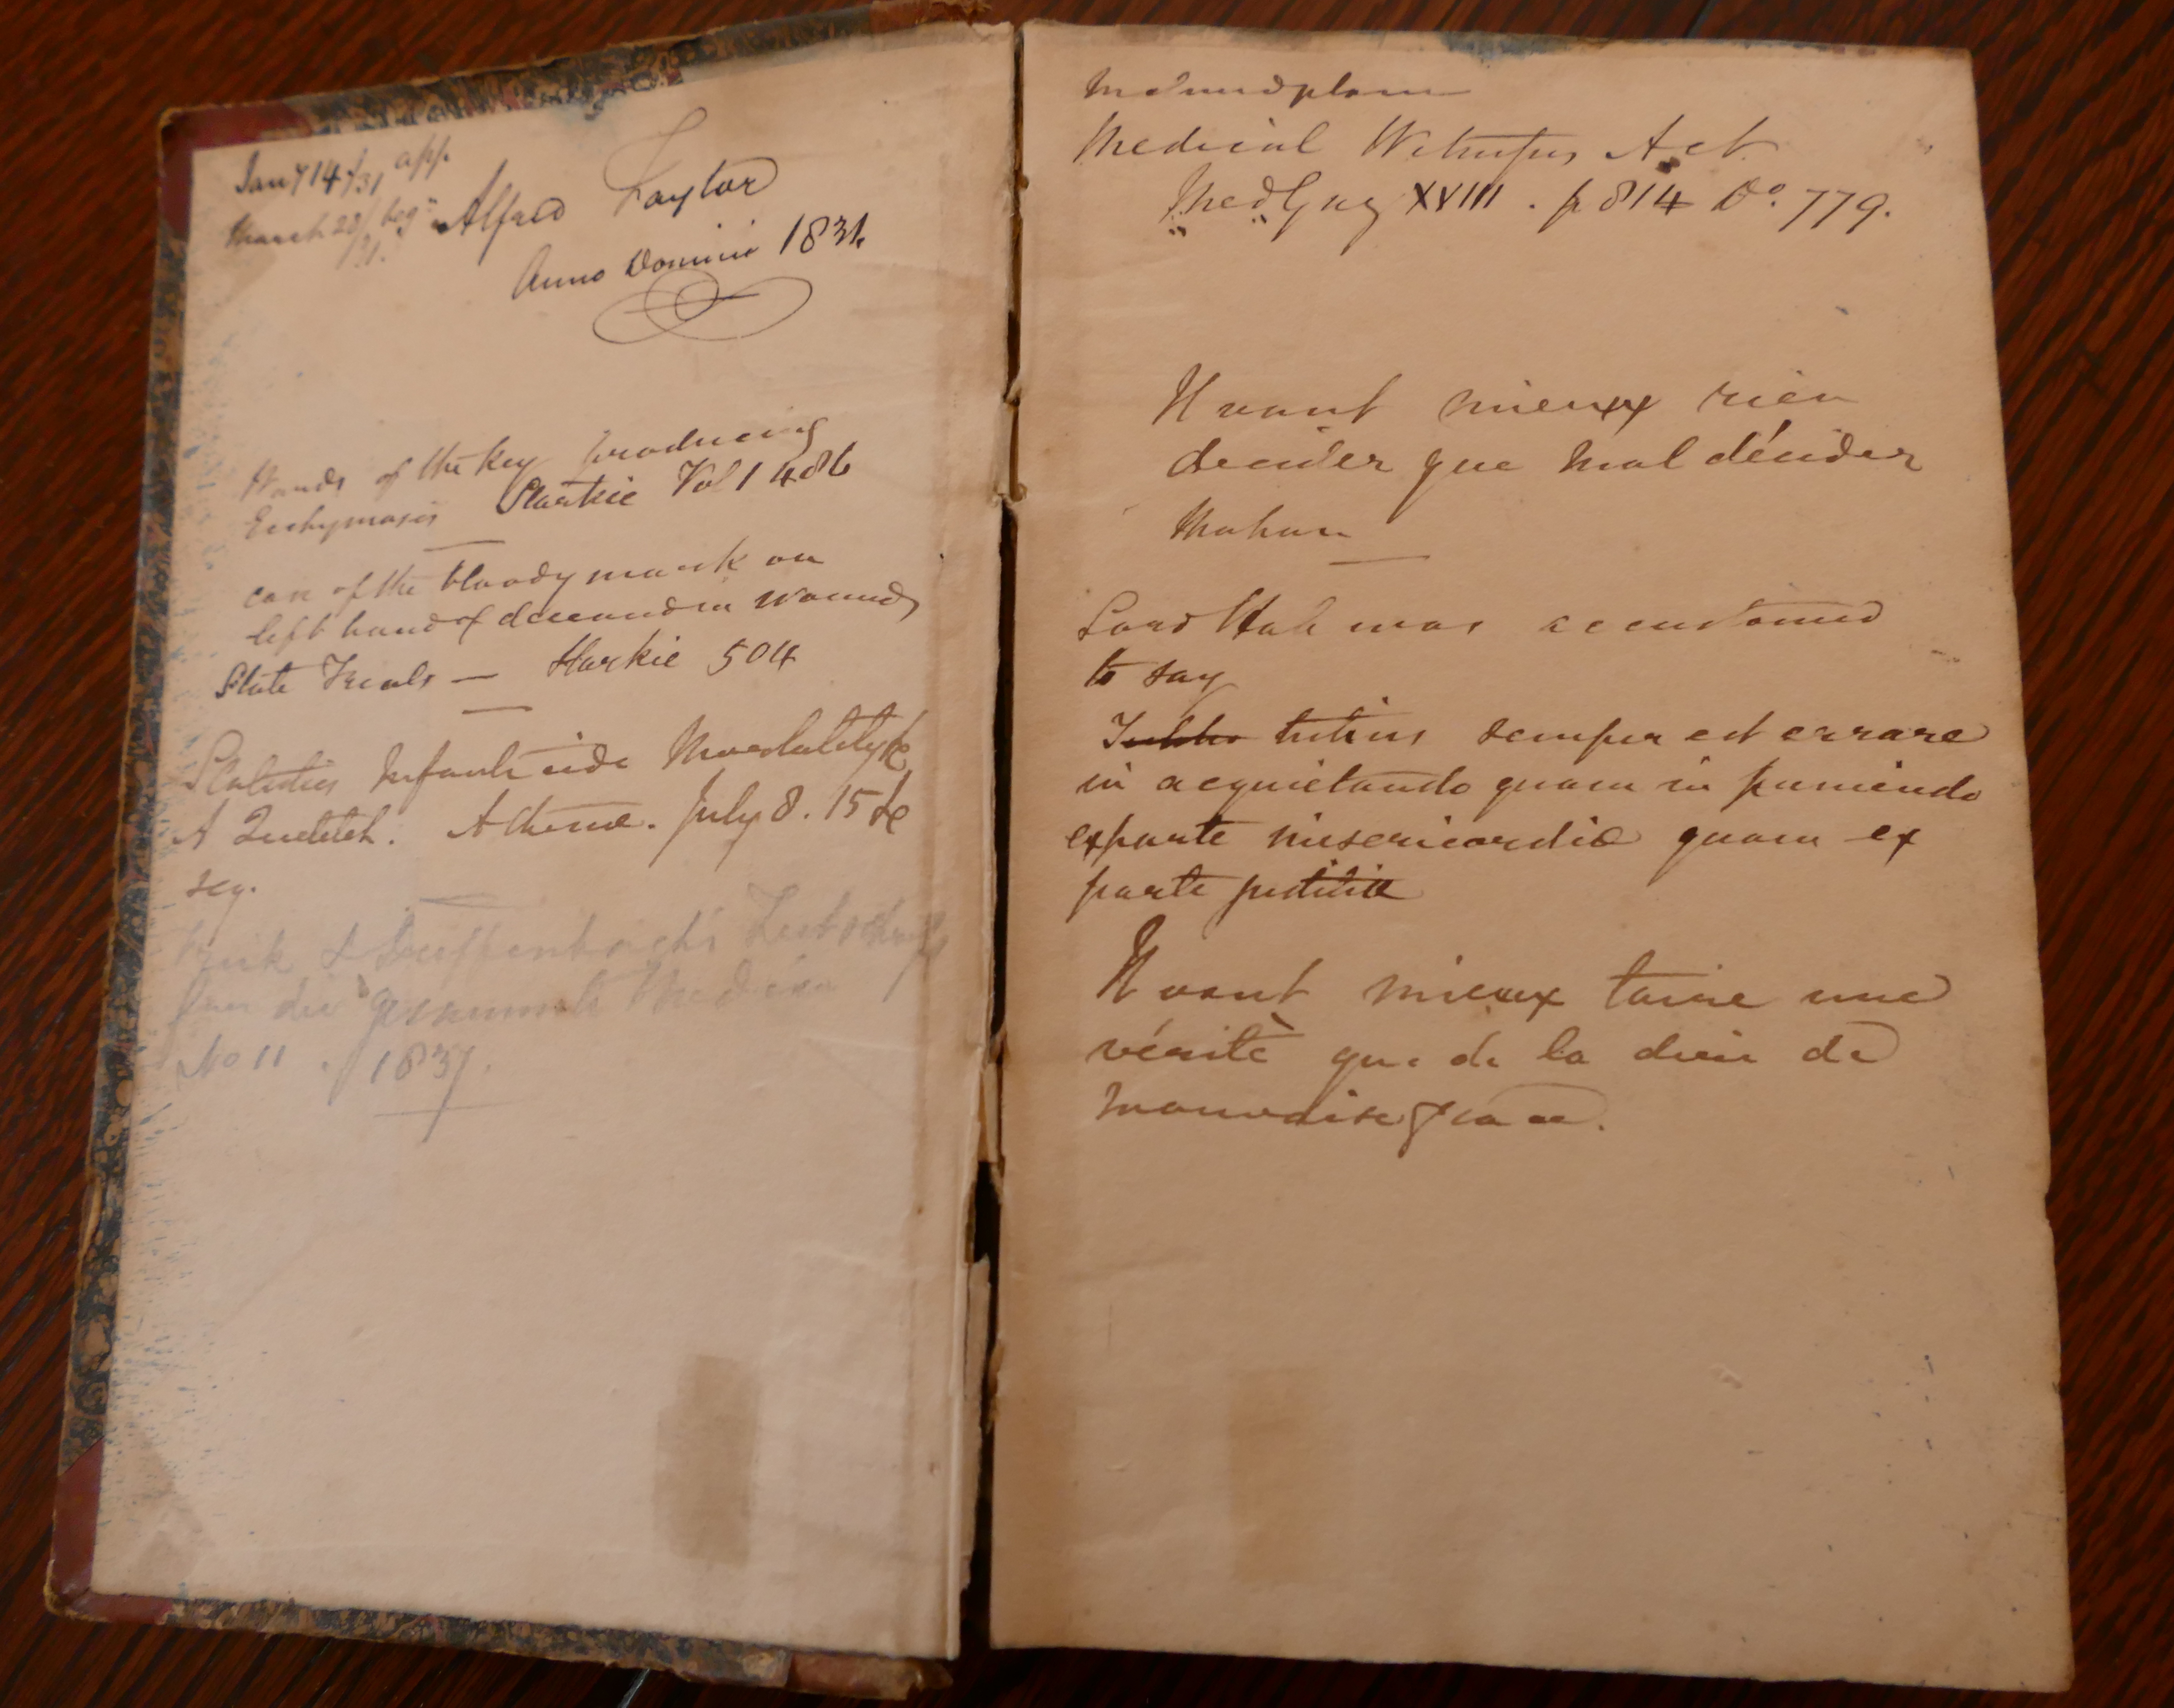 Jany 14/31 app.
March 28/31. beg.
Alfred Taylor
Anno Domini 1831.
Wards of the key producing
Ecchymosis Starkie Vol 1 486
case of the bloody mark on
left hand of deceased in wounds
State Trials — Starkie 504
Statistics Infanticide Mortality &c
A Quetelet. Athenæ. July 8. 15 &c
seq.
& Dieffenbach's Zeitschrift
für die gesammte Medicin
No 11 . 1837.
Medical Witnesses Act
Med Gaz XVIII . p 814 Do. 779.
Il vaut mieux rien
decider que mal décider
Mahon
Lord Hale was accustomed
to say
tutius semper est errare
in acquietando quam in puniendo
ex parte misericordiæ quam ex
parte justitiæ
Il vaut mieux taire une
vérité que de la dire de
mauvaise grace.